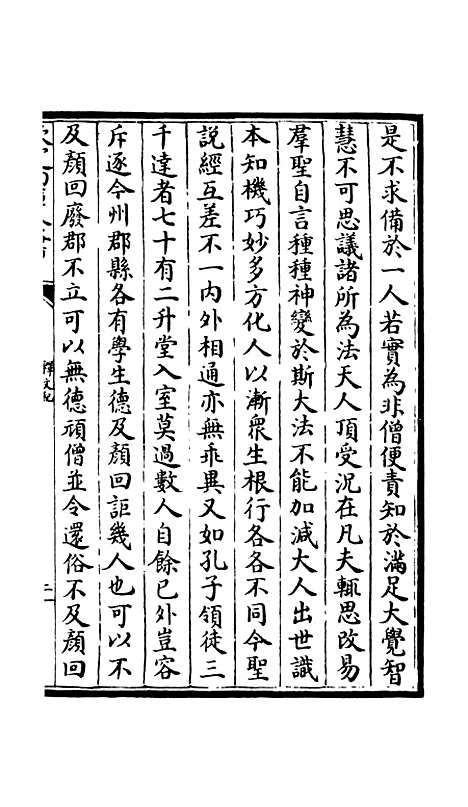 是不求備於一人若實為非僧便責知於滿足大覺智
慧不可思議諸所為法天人頂受況在凡夫輒思改易
羣聖自言種種神變於斯大法不能加減大人出世識
本知機巧妙多方化人以漸衆生根行各各不同今聖
說經互差不一内外相通亦無乖異又如孔子領徒三
千達者七十有二升堂入室莫過數人自餘已外豈容
斥逐今州郡縣各有學生德及顔回詎幾人也可以不
及顔回廢郡不立可以無德頑僧並令還俗不及顔回
釋文紀